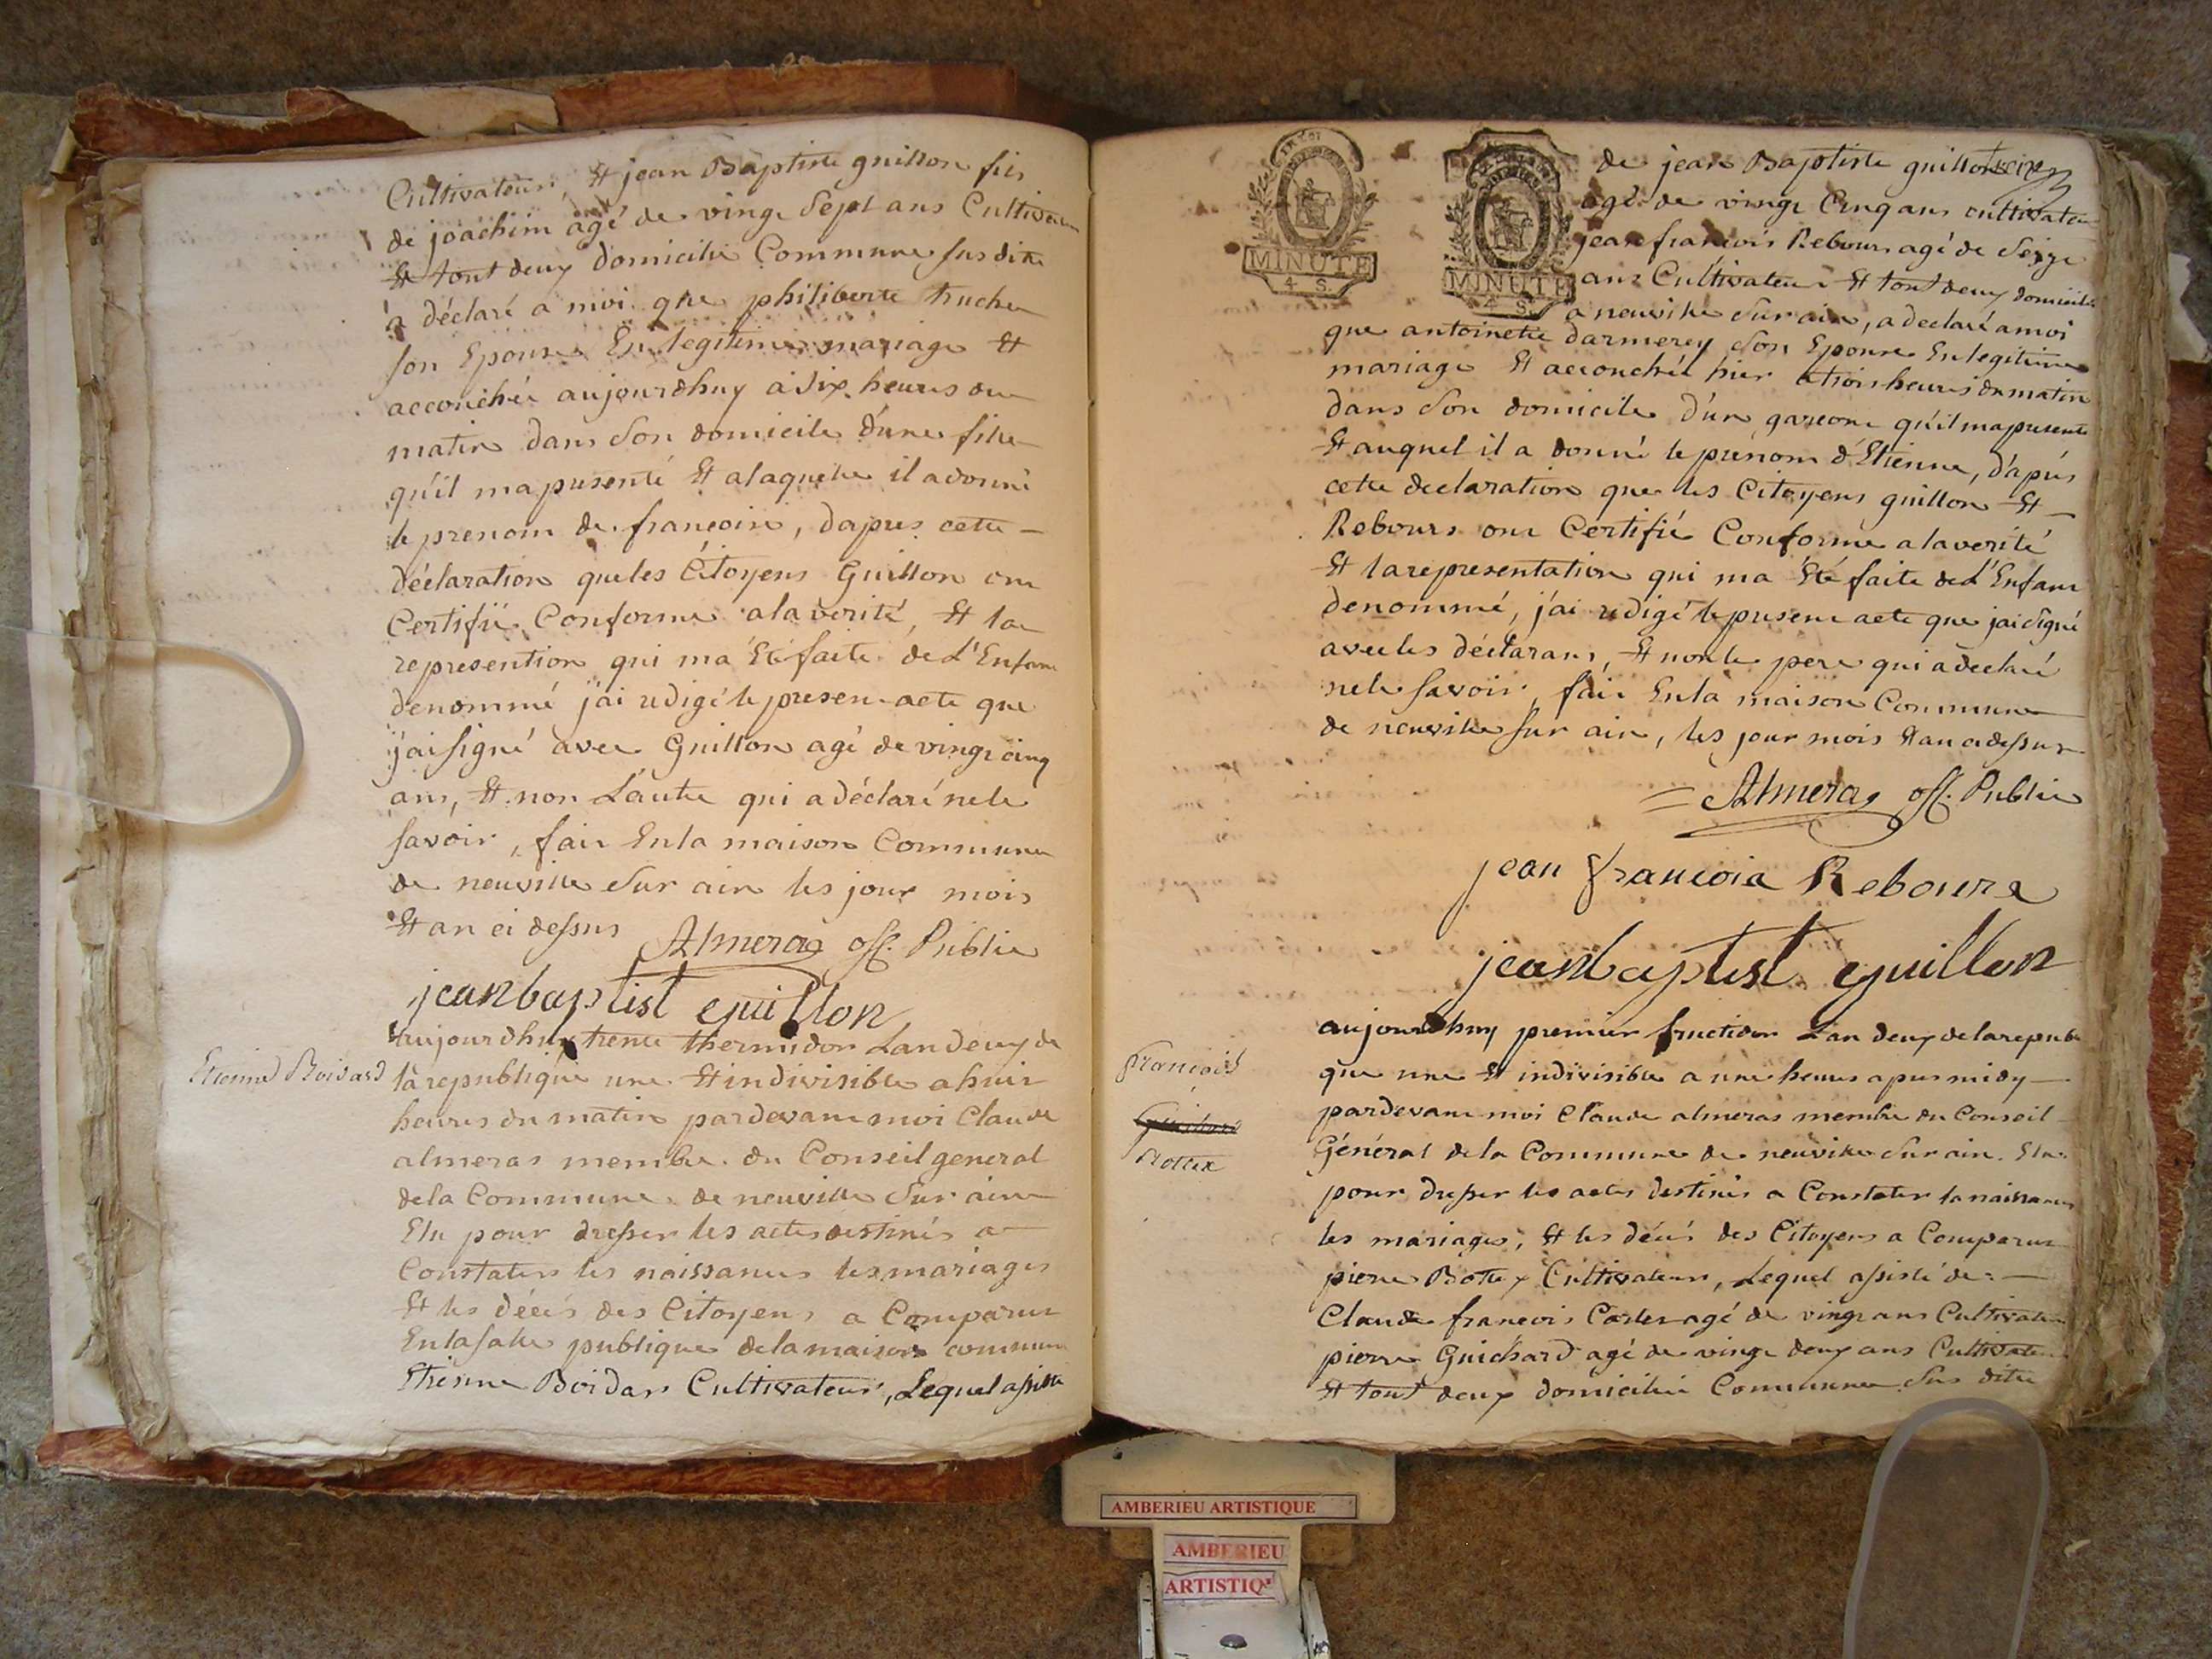 Cultivateur, Et jean Baptiste guillon fils
de joachim agé de vingt Sept ans Cultivateur
Et tout deux domicilié Commune sus dite
a déclaré a moi que philiberte truche
son Epouse En legitime mariage Et
accouchée aujourdhuy a dix heures du
matin dans Son domicile d'une fille
qu'il ma presenté Et alaquelle il adonné
le prenom de francoise, dapres cette
déclaration que les Citoyens Guillon ont
Certifié Conforme alaverité, Et la
represention qui ma Eté faite de L'Enfant
denommé j'ai redigé le present acte que
j'ai signé avec Guillon agé de vingt cinq
ans, Et non L'autre qui a déclaré nele
savoir, fait Enla maison Commune
de neuville Sur ain les jour mois
Et an ci dessus Almeras off. Public
jeanbaptist guillon
aujourdhuy trente thermidor Lan deux de
Etienne Boidard
la republique une Et indivisible a huit
heures du matin pardevant moi Claude
almeras membre du Conseil general
dela Commune de neuville Sur ain
Elu pour dresser les actes destinés a
Constater les naissances les mariages
Et les décés des Citoyens a Comparut
Enlasalle publique dela maison commune
Etienne Boidard Cultivateur, Lequel assisté
MINUTE
4 S.
MINUTE
4 S.
de jean Baptiste guillon
agé de vingt Cinq ans cultivateur
jean francois Rebours agé de Seize
ans Cultivateur Et tout deux domicilié
a neuville Sur ain, a declaré amoi
que antoinette darmerey Son Epouse En legitime
mariage Et accouchée hier a trois heures du matin
dans Son domicile d'un garcon qu'il ma presenté
Et auquel il a donné le prenom d'Etienne, d'aprés
cette declaration que les Citoyens guillon Et
Rebours ont Certifié Conforme alaverité
Et la representation qui ma Eté faite de L'Enfant
denommé, j'ai redigé le present acte que jai signé
avec les déclarans, Et non le pere qui a declaré
nele Savoir, fait Enla maison Commune
de neuville sur ain, les jour mois Et an ci dessus
Almeras off. Public
jean francois Rebours
jeanbaptist guillon
aujourdhuy premier fructidor Lan deux dela republi
francois
que une Et indivisible a une heures apres midy
pardevant moi Claude almeras membre du Conseil
Général dela Commune de neuville Sur ain. Elu
Bottex
pour dresser les actes destinés a Constater la naissances
les mariages, Et les décés des Citoyens a Comparut
pierre Bottex Cultivateur, Lequel assisté de
Claude francois agé de vingt ans Cultivateur
pierre Guichard agé de vingt deux ans Cultivateur
Et tout deux domicilié Commune Sus dite
AMBERIEU ARTISTIQUE
AMBERIEU
ARTISTIQ